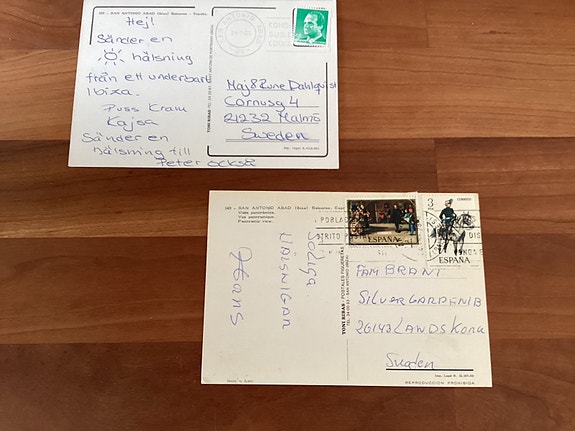 SAN ANTONIO ABAD (Ibiza) Baleares - España.
Hej!
Sänder en
hälsning
från ett underbart
Ibiza.
Puss Kram
Kajsa
Sänder en
hälsning till
Peter också
Maj & Rune Dahlquist
Cornusg 4
21232 Malmö
Sweden
TONI RIBAS
SAN ANTONIO ABAD (Ibiza) Baleares.
Vista panorámica.
Vue panoramique.
Panoramic view.
Soliga
Hälsnigar
Hans
TONI RIBAS - POSTALES FIGUERETAS
ESPAÑA
3
CORREOS
ESPAÑA
FAM BRANT
SILVERGARDENIB
26143 LANDSKRONA
Sweden
REPRODUCCION PROHIBIDA